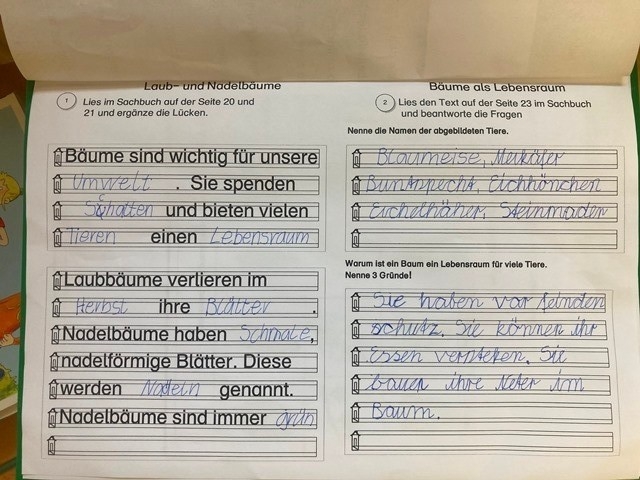 Laub- und Nadelbäume
1 Lies im Sachbuch auf der Seite 20 und
21 und ergänze die Lücken.
Bäume sind wichtig für unsere
Umwelt . Sie spenden
Schatten und bieten vielen
Tieren einen Lebensraum
Laubbäume verlieren im
Herbst ihre Blätter .
Nadelbäume haben Schmale,
nadelförmige Blätter. Diese
werden Nadeln genannt.
Nadelbäume sind immer grün
Bäume als Lebensraum
2 Lies den Text auf der Seite 23 im Sachbuch
und beantworte die Fragen
Nenne die Namen der abgebildeten Tiere.
Blaumeise, Meikäfer
Buntspecht, Eichhönchen
Eichelhäher, Steinmader
Warum ist ein Baum ein Lebensraum für viele Tiere.
Nenne 3 Gründe!
Sie haben vor feinden
schutz. Sie können ihr
Essen versteken. Sie
bauen ihre Neter im
Baum.